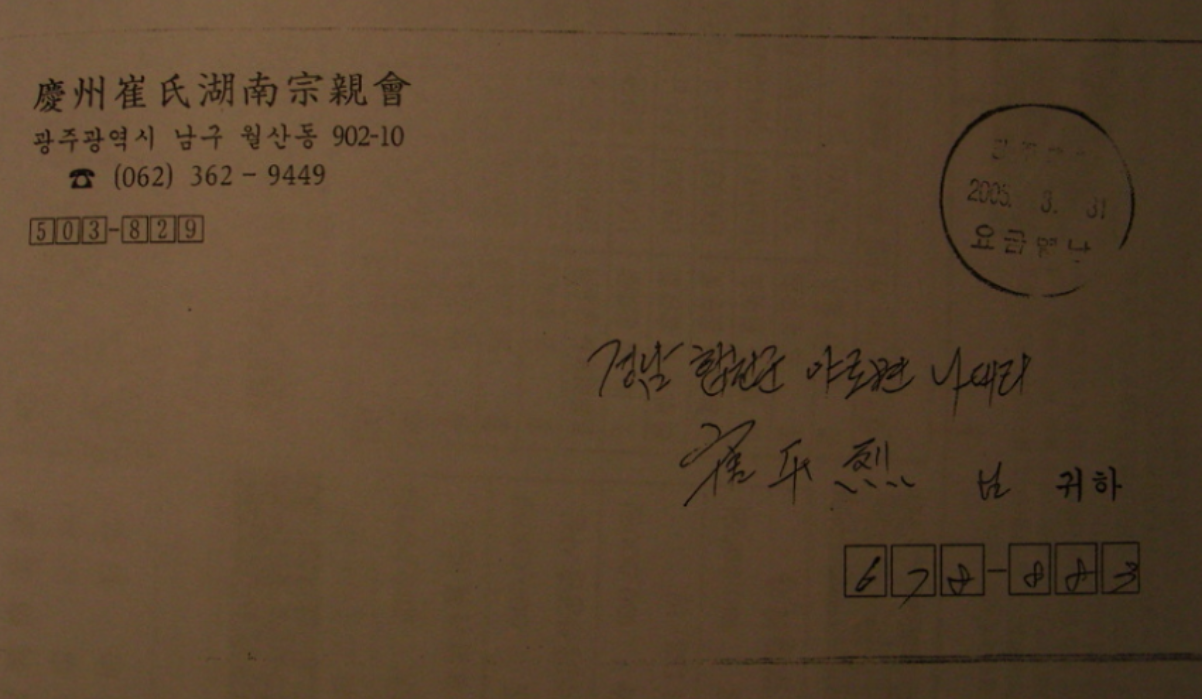 慶州崔氏湖南宗親會
광주광역시 남구 월산동 902-10
☎ (062) 362-9449
503-829
2005. 31
요금별납
경남 합천군 야로면 나대리
崔 烈 님 귀하
678-883